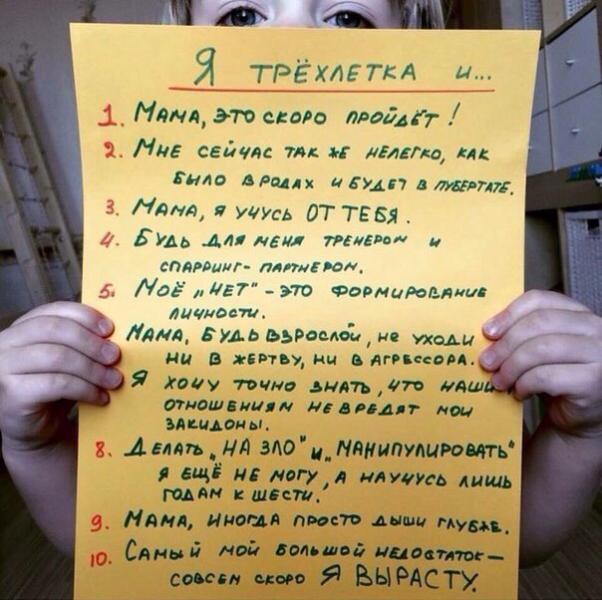 Я ТРЁХЛЕТКА и...
1. Мама, это скоро пройдёт!
2. Мне сейчас так же нелегко, как
было в родах и будет в пубертате.
3. Мама, я учусь ОТ ТЕБЯ.
4. Будь для меня тренером и
спарринг-партнером.
5. Моё „НЕТ" - это формирование
личности.
Мама, будь взрослой, не уходи
ни в жертву, ни в агрессора.
Я хочу точно знать, что наши
отношениям не вредят мои
закидоны.
8. Делать „НА ЗЛО" и „МАНИПУЛИРОВАТЬ"
я ещё не могу, а научусь лишь
годам к шести.
9. Мама, иногда просто дыши глубже.
10. Самый мой большой недостаток —
совсем скоро Я ВЫРАСТУ.